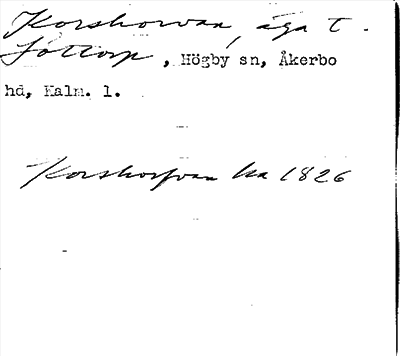 Korshorvan, äga t.
Söttorp, Högby sn, Åkerbo
hd, Kalm. l.
Korshorfvan ha 1826